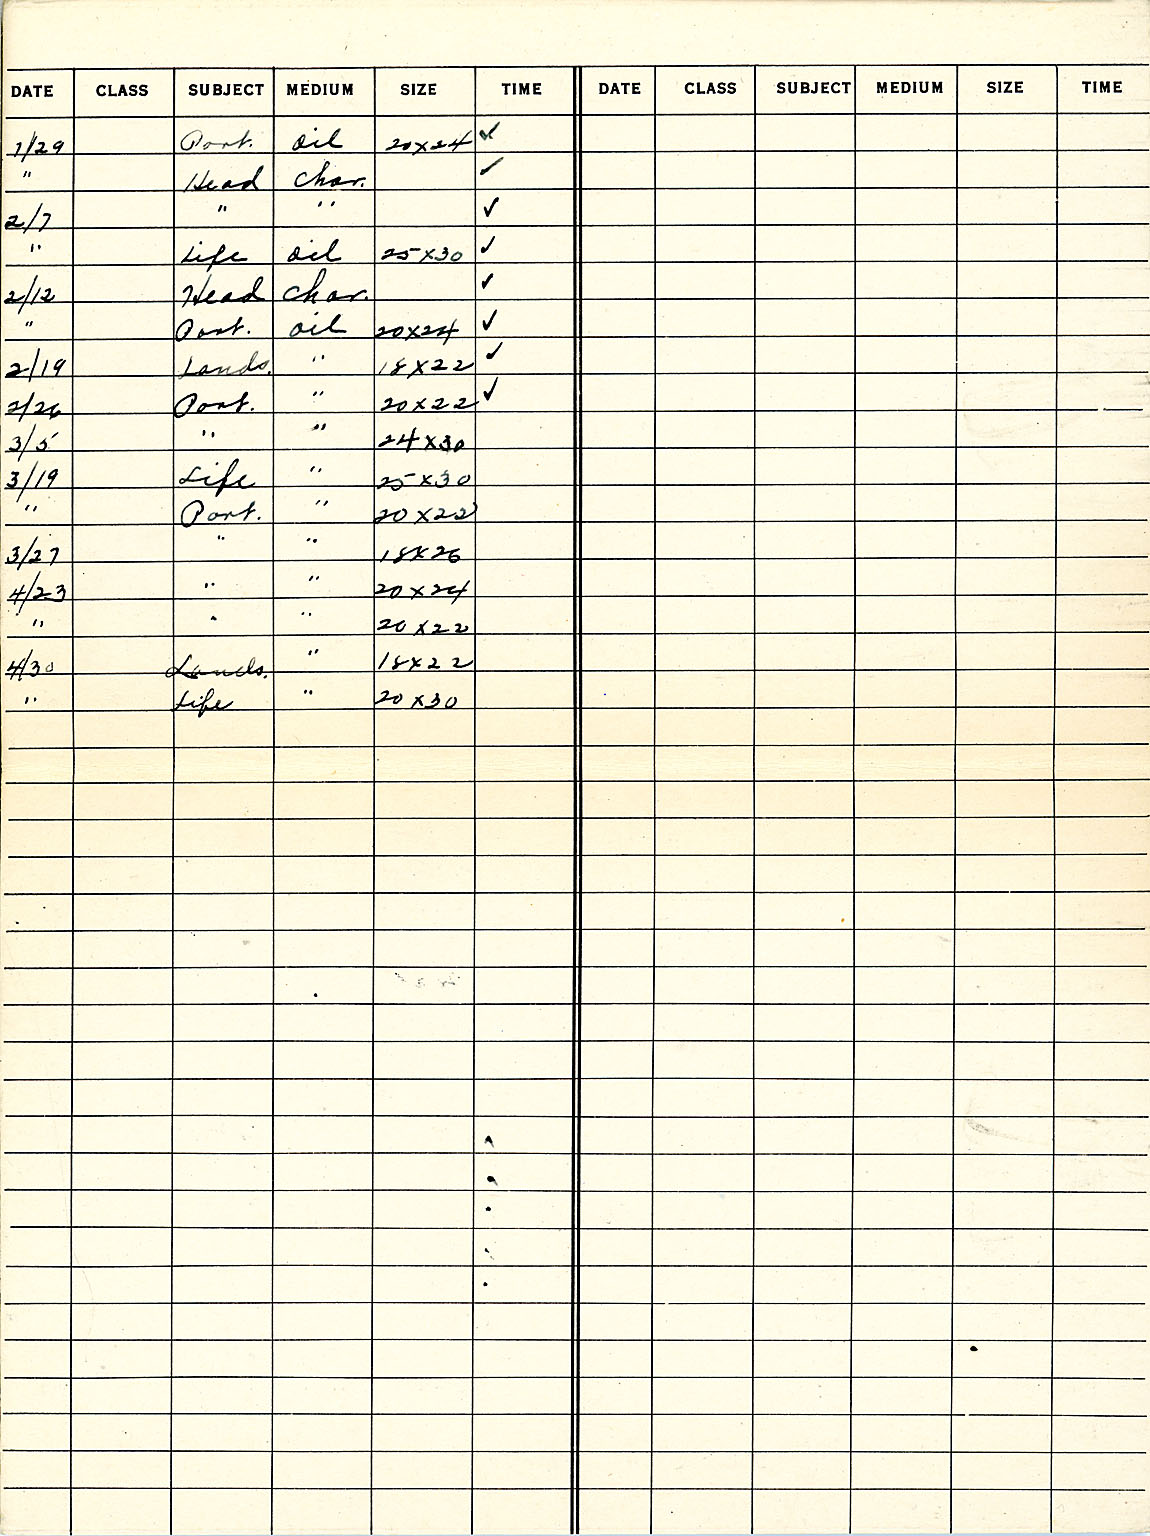 DATE CLASS SUBJECT MEDIUM SIZE TIME DATE CLASS SUBJECT MEDIUM SIZE TIME
1/29 Port. oil 20x24 ✓
" Head char. ✓
2/7 " " ✓
" Life oil 25x30 ✓
2/12 Head char. ✓
" Port. oil 20x24 ✓
2/19 Lands. " 18x22 ✓
2/26 Port. " 20x22 ✓
3/5 " " 24x30
3/19 Life " 25x30
" Port. " 20x22
3/27 " " 18x26
4/23 " " 20x24
" " " 20x22
4/30 Lands. " 18x22
" Life " 20x30